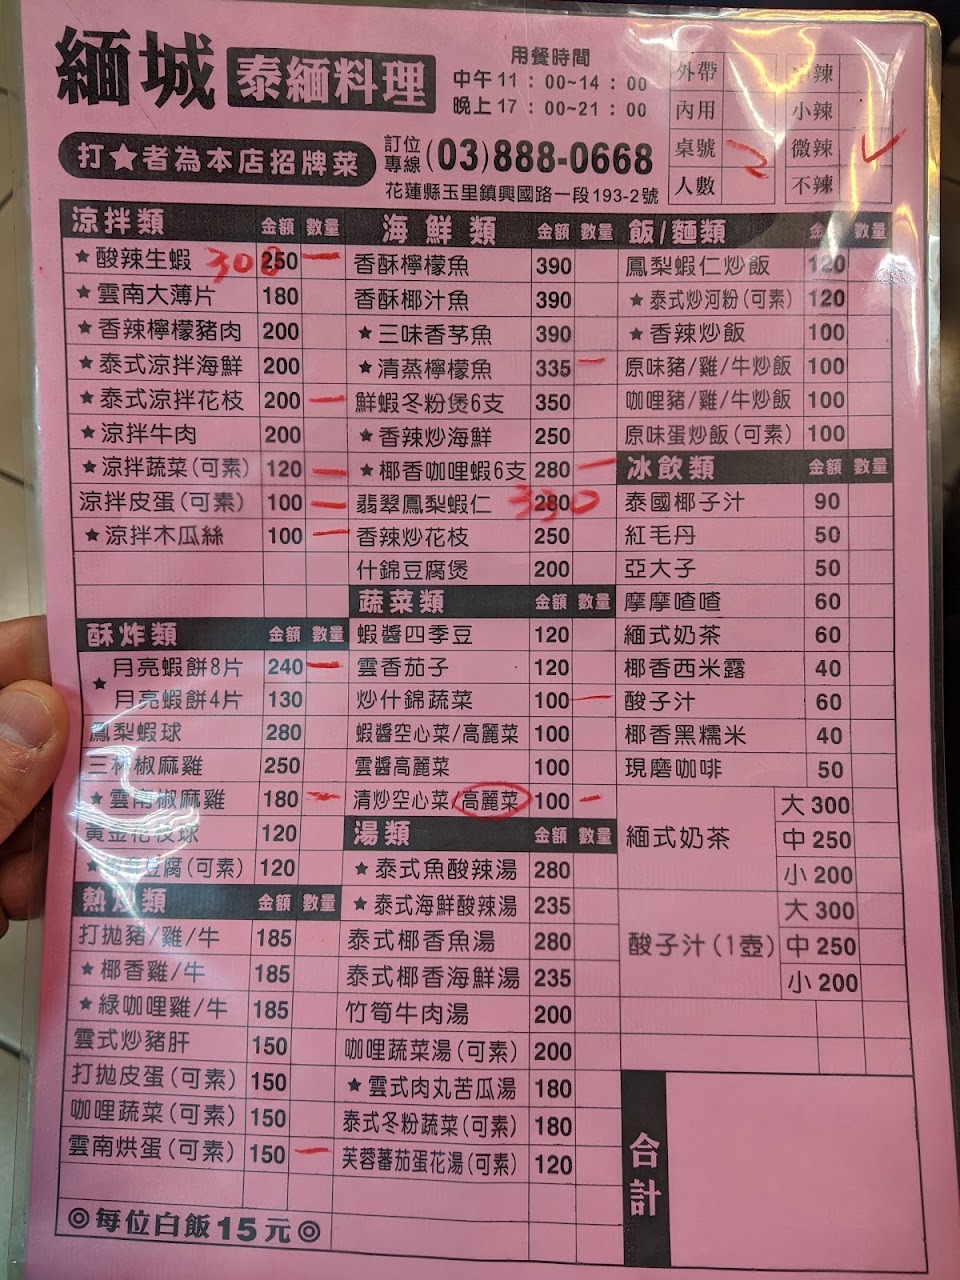 緬城 泰緬料理
用餐時間
中午11：00~14：00
晚上17：00~21：00
打★者為本店招牌菜
訂位專線(03)888-0668
花蓮縣玉里鎮興國路一段193-2號
外帶 辣
內用 小辣
桌號 2 微辣 ✓
人數 不辣
涼拌類 金額 數量
★酸辣生蝦 300 250 一
★雲南大薄片 180
★香辣檸檬豬肉 200
★泰式涼拌海鮮 200
★泰式涼拌花枝 200 一
★涼拌牛肉 200
★涼拌蔬菜(可素) 120 一
涼拌皮蛋(可素) 100 一
★涼拌木瓜絲 100 一
酥炸類 金額 數量
★ 月亮蝦餅8片 240 一
月亮蝦餅4片 130
鳳梨蝦球 280
三杯椒麻雞 250
★雲南椒麻雞 180 一
黃金花枝球 120
豆腐(可素) 120
熱炒類 金額 數量
打拋豬/雞/牛 185
★椰香雞/牛 185
★綠咖哩雞/牛 185
雲式炒豬肝 150
打拋皮蛋(可素) 150
咖哩蔬菜(可素) 150
雲南烘蛋(可素) 150 一
◎每位白飯15元◎
海鮮類 金額 數量
香酥檸檬魚 390
香酥椰汁魚 390
★三味香茅魚 390
★清蒸檸檬魚 335 一
鮮蝦冬粉煲6支 350
★香辣炒海鮮 250
★椰香咖哩蝦6支 280 一
翡翠鳳梨蝦仁 280 330
香辣炒花枝 250
什錦豆腐煲 200
蔬菜類 金額 數量
蝦醬四季豆 120
雲香茄子 120
炒什錦蔬菜 100 一
蝦醬空心菜/高麗菜 100
雲醬高麗菜 100
清炒空心菜/高麗菜 100 一
湯類 金額 數量
★泰式魚酸辣湯 280
★泰式海鮮酸辣湯 235
泰式椰香魚湯 280
泰式椰香海鮮湯 235
竹筍牛肉湯 200
咖哩蔬菜湯(可素) 200
★雲式肉丸苦瓜湯 180
泰式冬粉蔬菜(可素) 180
芙蓉蕃茄蛋花湯(可素) 120
飯/麵類 金額 數量
鳳梨蝦仁炒飯 120
★泰式炒河粉(可素) 120
★香辣炒飯 100
原味豬/雞/牛炒飯 100
咖哩豬/雞/牛炒飯 100
原味蛋炒飯(可素) 100
冰飲類 金額 數量
泰國椰子汁 90
紅毛丹 50
亞大子 50
摩摩喳喳 60
緬式奶茶 60
椰香西米露 40
酸子汁 60
椰香黑糯米 40
現磨咖啡 50
緬式奶茶 大300
中250
小200
酸子汁(1壺) 大300
中250
小200
合計